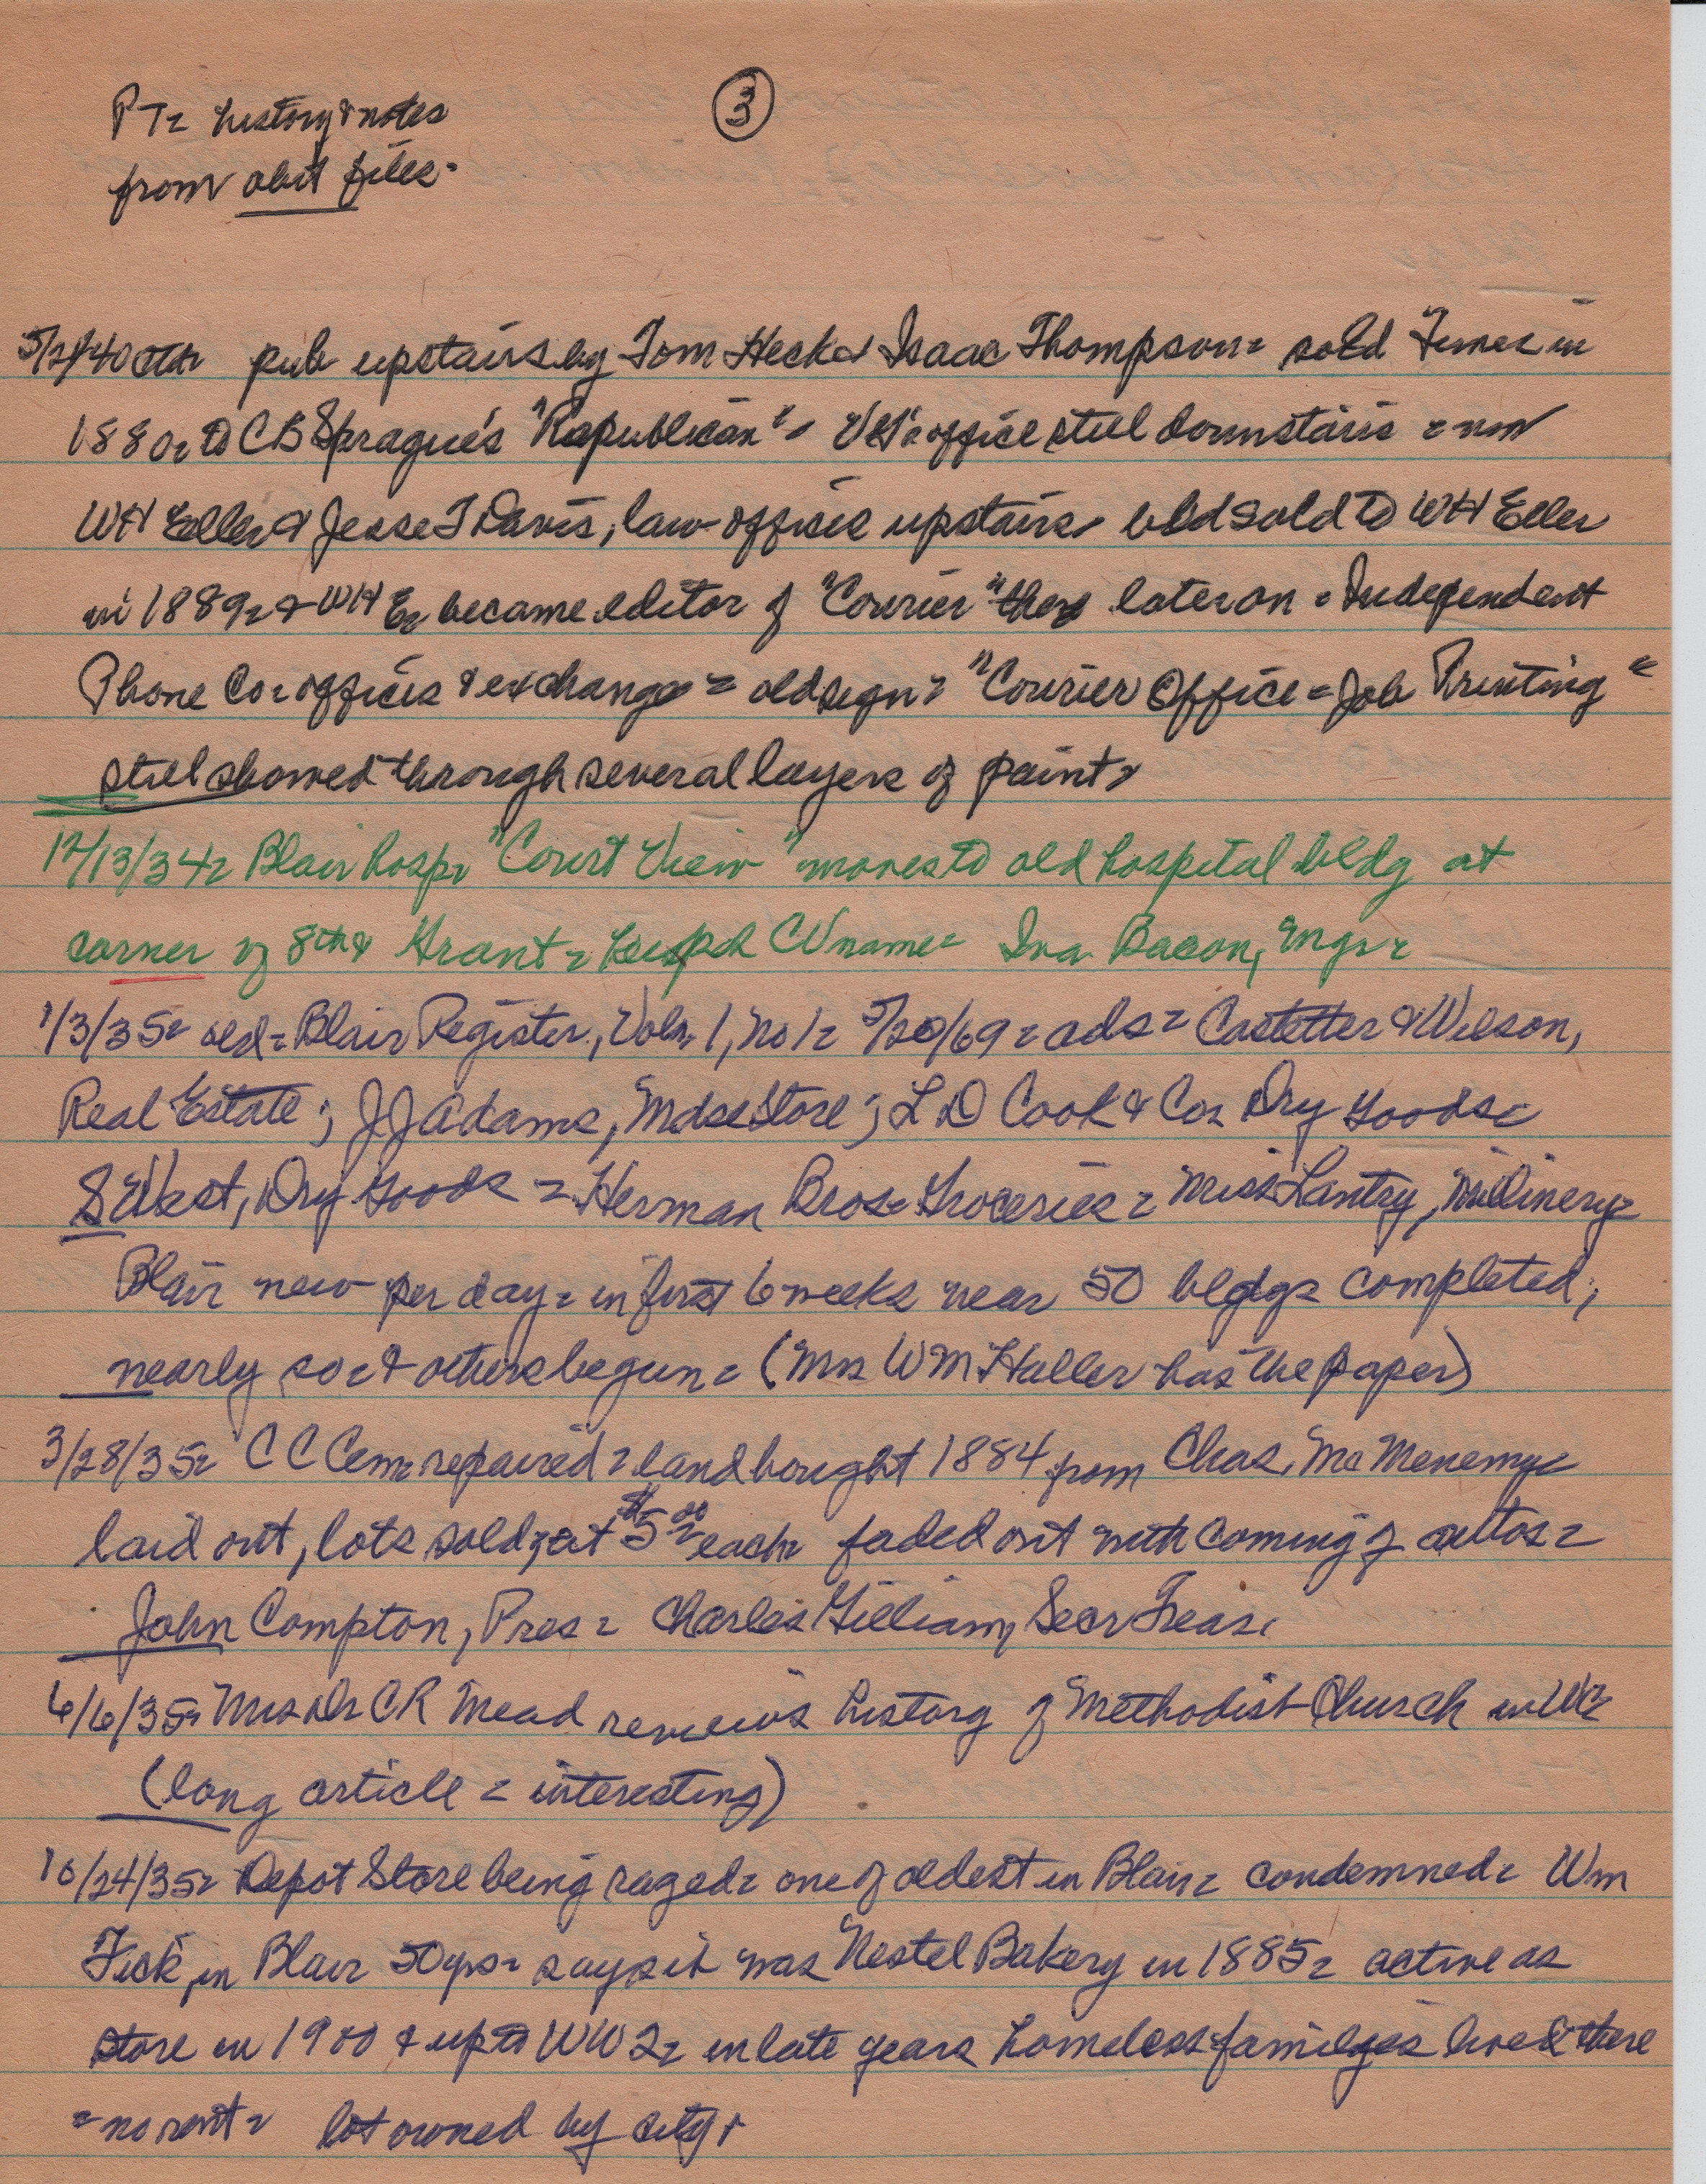 PT= history & notes
③
from obit files-
5/2/40 pub upstairs by Tom Heck & Isaac Thompson= sold Times in
1880= to CB Sprague's "Republican"= office still downstairs = now
WH Eller & Jesse T Davis, law office upstairs bld sold to WH Eller
in 1889= & WH E= became editor of "Courier" there later on = Independent
Phone Co= offices & exchange = old sign= "Courier Office = Job Printing"
still showed through several layers of paint=
12/13/34= Blair hosp= "Court View" moves to old hospital bldg at
corner of 8th & Grant = CV name= Ina Bacon, mgr=
1/3/35= old = Blair Register, Vol. 1, No 1= 5/20/69 = ads = Castetter & Wilson,
Real Estate; JJ Adams, Mdse Store; L D Cook & Co= Dry Goods=
West, Dry Goods = Herman Bros= Groceries = Miss Lantry, Millinery=
Blair new per day= in first 6 weeks near 50 bldgs completed,
nearly so= & others begun= (Mrs WM Haller has the paper)
3/28/35= C C Cem= repaired = land bought 1884 from Chas. McMenemy=
laid out, lots sold, at $5.00 each= faded out with coming of autos=
John Compton, Pres= Charles Gilliam, Sec= Treas.
6/6/35= Mrs Dr CR Mead reviews history of Methodist Church in WC=
(long article = interesting)
10/24/35= Depot Store being razed= one of oldest in Blair= condemned= Wm
Fick, in Blair 50 yrs= says it was Nestel Bakery in 1885= active as
store in 1900 & up to WW 2= in late years homeless families lived there
= no rent= lot owned by city=